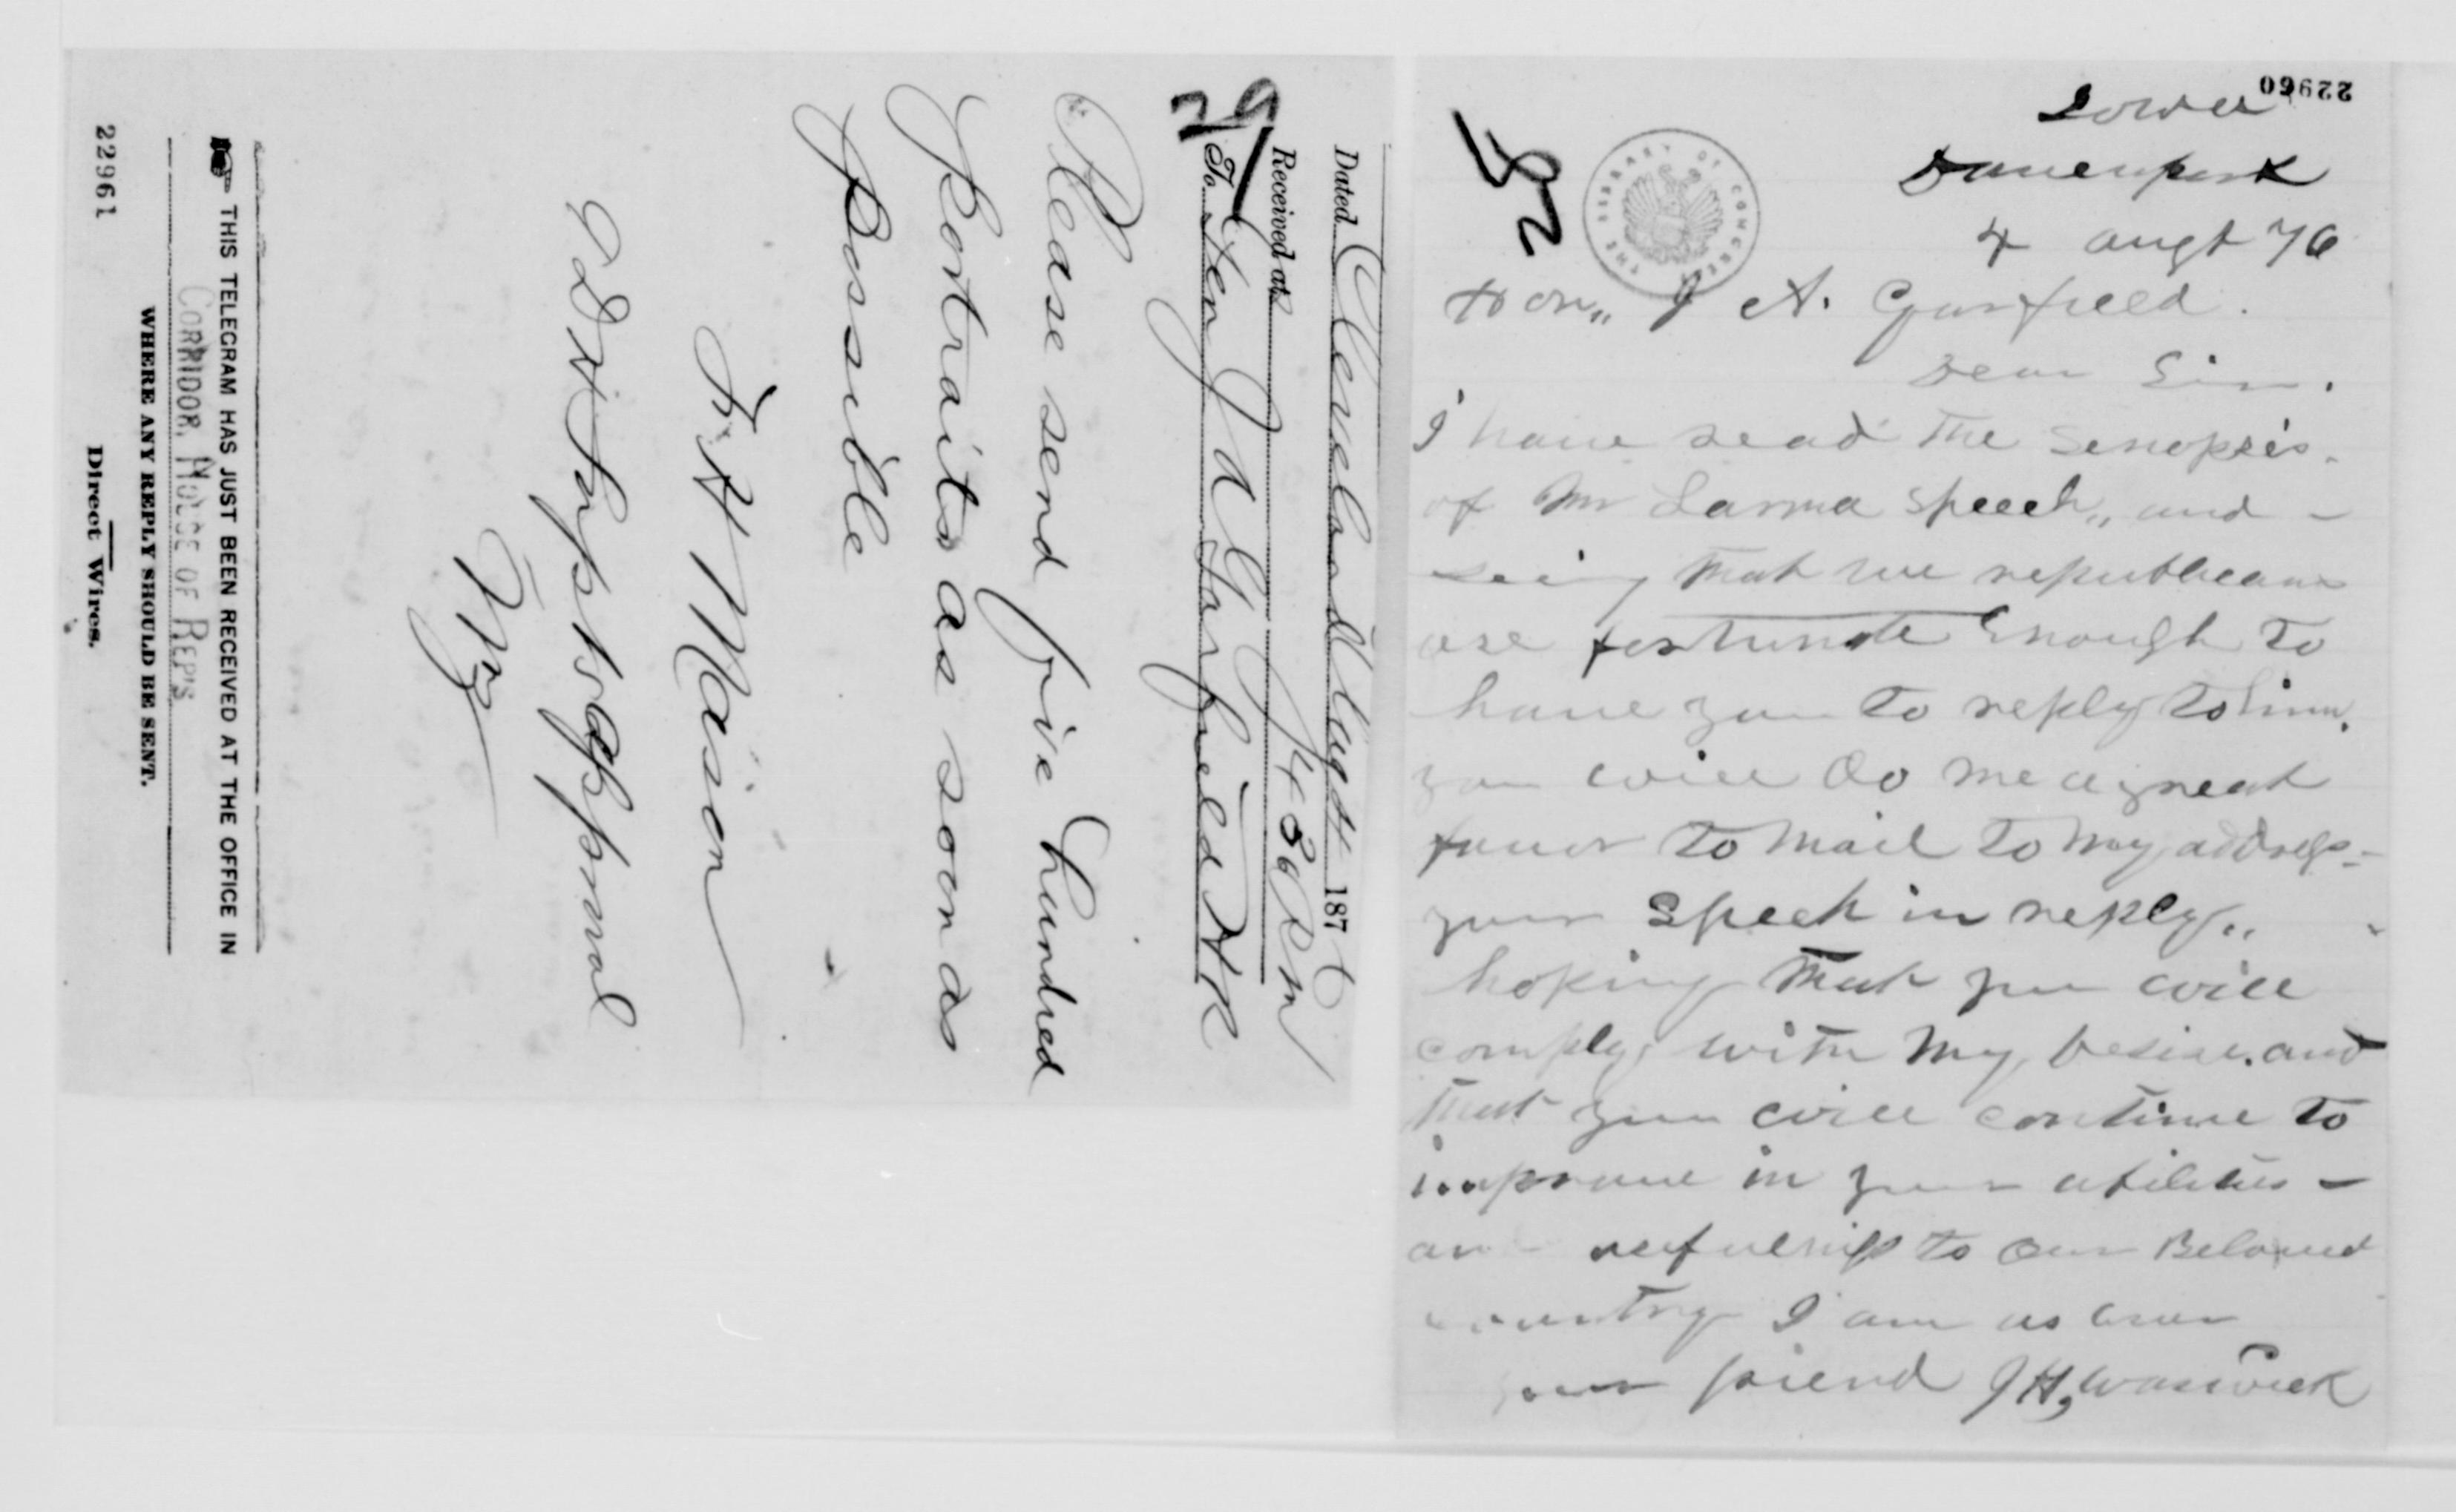 Dated Cleveland O Augst 4 1876
Received at 4 30 Pm
29
To Hon J A Garfield H R
Please send five hundred
portraits as soon as
possible
F H Mason
THIS TELEGRAM HAS JUST BEEN RECEIVED AT THE OFFICE IN
CORRIDOR, HOUSE OF REP'S
WHERE ANY REPLY SHOULD BE SENT.
Direct Wires.
22961
22960
Iowa
Davenport
4 augt 76
THE LIBRARY OF CONGRESS
Hon,, J A. Garfield.
Dear Sir.
I have read the senopsis.
of Mr Larma speech,, and -
seeing that we republicans
are fortunate Enough to
have you to reply to him.
you will do me a great
favor to mail to my address -
your speech in reply,,
hoping that you will
comply with my desire. and
that you will continue to
improve in your abilities -
and usefulness to our Beloved
country I am as ever
your friend J H, Warwick